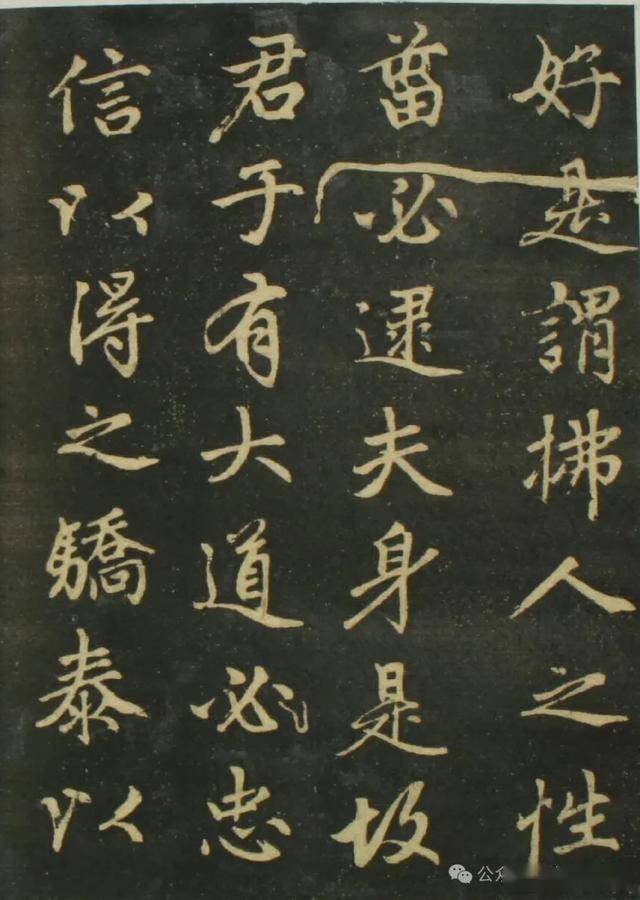 好是謂拂人之性
菑必逮夫身是故
君子有大道必忠
信以得之驕泰以
公众